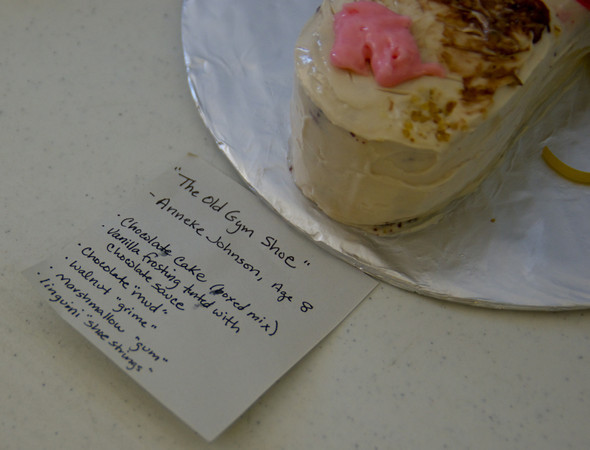 "The Old Gym Shoe"
- Anneke Johnson, Age 8
· Chocolate Cake (boxed mix)
· Vanilla frosting tinted with
chocolate sauce
· Chocolate "mud"
· Walnut "grime"
· Marshmallow "gum"
· linguini "shoe strings"